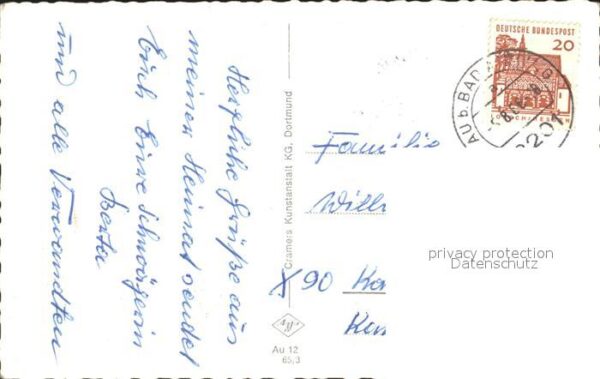 Herzliche Grüße aus
meiner Heimat sendet
Euch Eure Schwägerin
Berta
und alle Verwandten
Cramers Kunstanstalt KG, Dortmund
Au 12
65,3
DEUTSCHE BUNDESPOST
20
AU b. BAD
8201
Familie
Willi
X90 Ka
privacy protection
Datenschutz